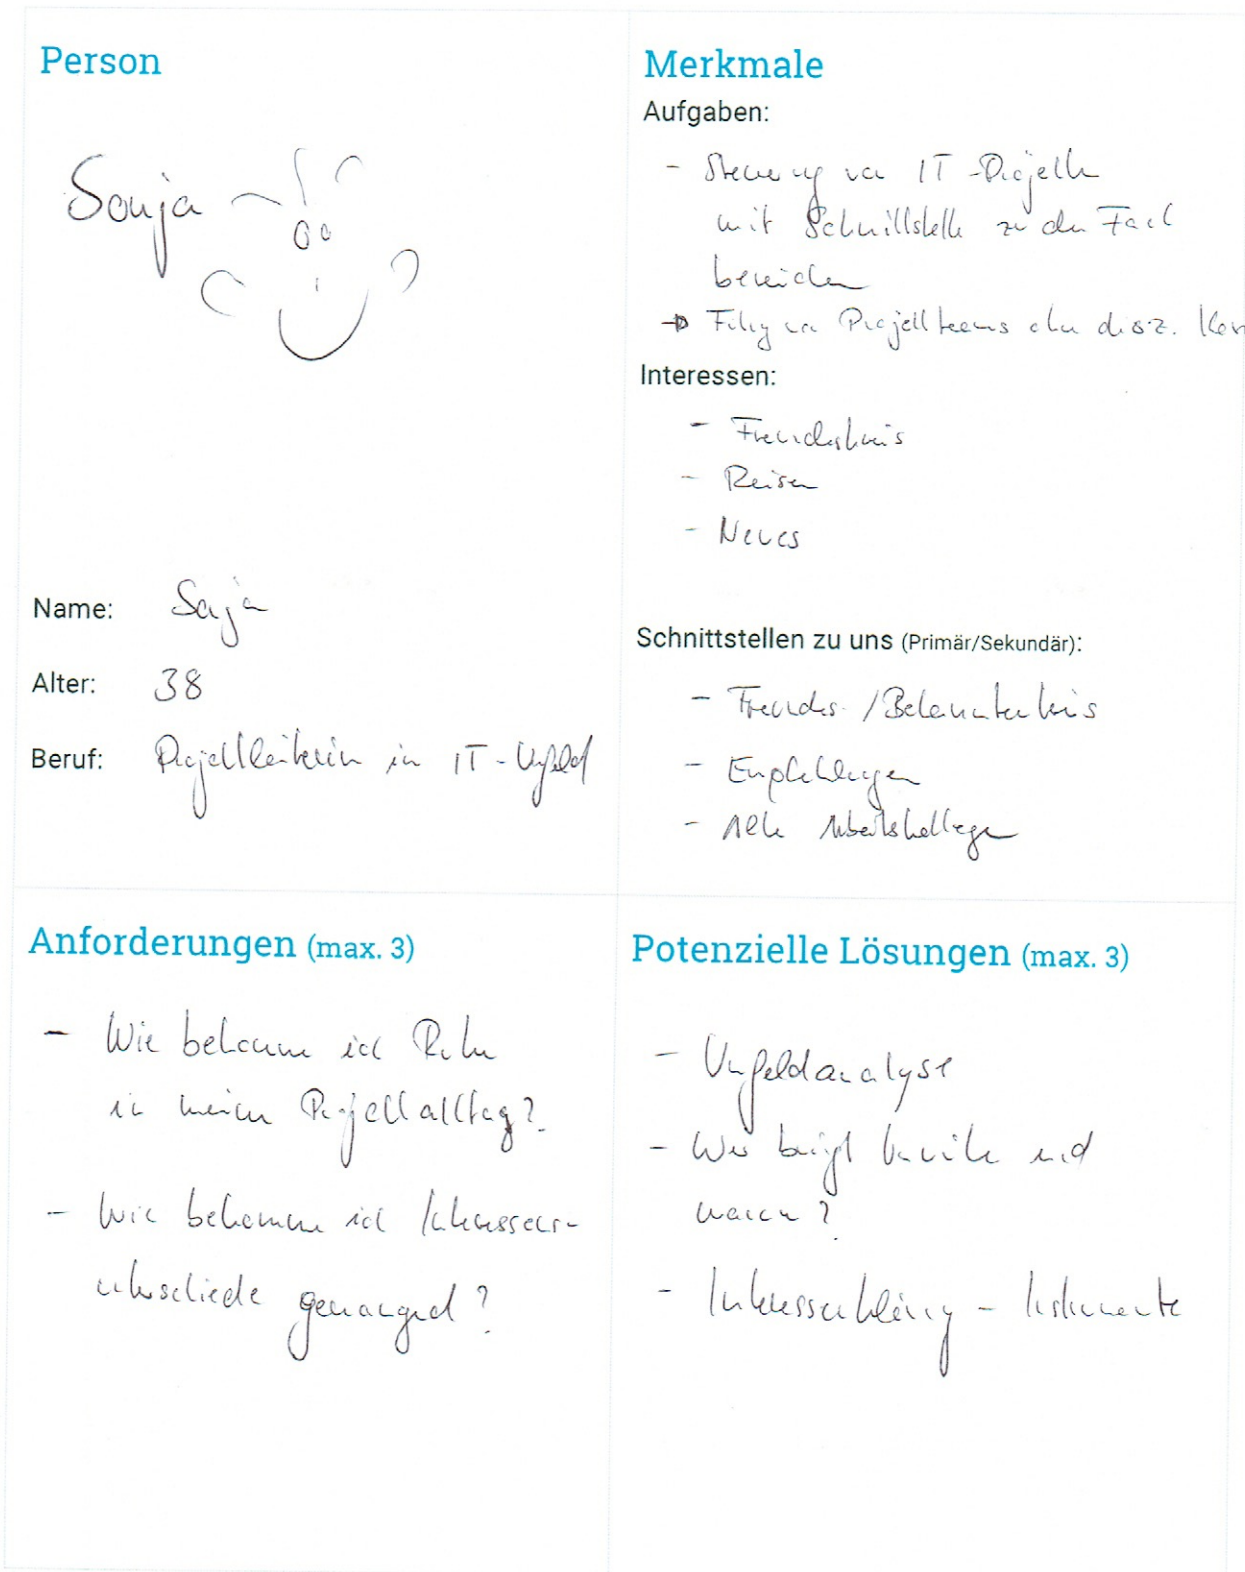 Person
Sonja
Name: Sonja
Alter: 38
Beruf: Projektleiterin in IT-Umfeld
Merkmale
Aufgaben:
- Steuerung von IT-Projekten
mit Schnittstelle zu den Fach
bereichen
Führung von Projektteams ohne disz.
Interessen:
- Freundeskreis
- Reisen
- Neues
Schnittstellen zu uns (Primär/Sekundär):
- Freundes-/Bekanntenkreis
- Empfehlungen
- Alte Arbeitskollegen
Anforderungen (max. 3)
- Wie bekomme ich Ruhe
in meinen Projektalltag?
- Wie bekomme ich Interessens-
unterschiede gemanaged?
Potenzielle Lösungen (max. 3)
- Umfeldanalyse
- Wer bringt Unruhe und
warum?
- Interessenklärung - Instrumente